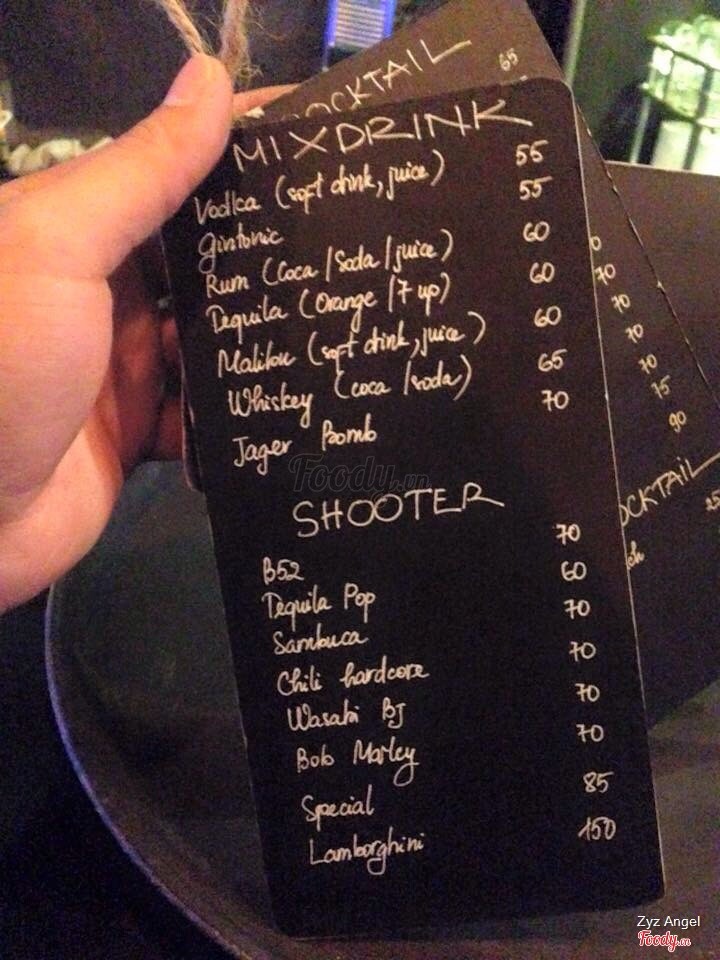 COCKTAIL 65
MIXDRINK
Vodka (soft drink, juice) 55
Gintonic 55
Rum (Coca/Soda/juice) 60
Tequila (Orange/7 up) 60
Malibu (soft drink, juice) 60
Whiskey (coca/soda) 65
Jager Bomb 70
Foody.vn
SHOOTER
B52 70
Tequila Pop 60
Sambuca 70
Chili hardcore 70
Wasabi BJ 70
Bob Marley 70
Special 85
Lamborghini 150
70
70
70
70
75
90
OCKTAIL
Zyz Angel
Foody.vn